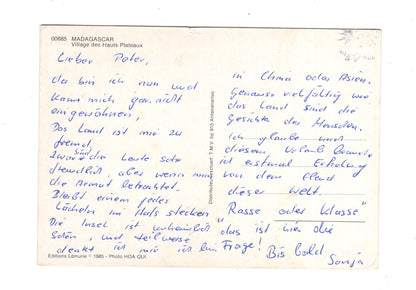 00685 MADAGASCAR
Village des Hauts Plateaux
Lieber Peter,
da bin ich nun und
kann mich gar nicht
eingewöhnen.
Das Land ist mir zu
fremd.
Zwar sind die Leute sehr
freundlich, aber wenn man
die Armut betrachtet.
Bleibt einem jedes
Lächeln im Hals stecken
Die Insel ist wunderbar
schön, und teilweise
denkt ich mir ich bin
Editions Lémurie © 1985 - Photo HOA QUI
T.M.V. bp 815 Antananarivo
in China oder Asien.
Genauso vielfältig wie
das Land sind die
Gesichte der Menschen.
Ich glaube nach
diesem Urlaub brauche
ich erstmal Erholung
von dem Elend
dieser Welt.
"Rasse oder Klasse"
das ist hier die
Frage!
Bis bald
Sonja